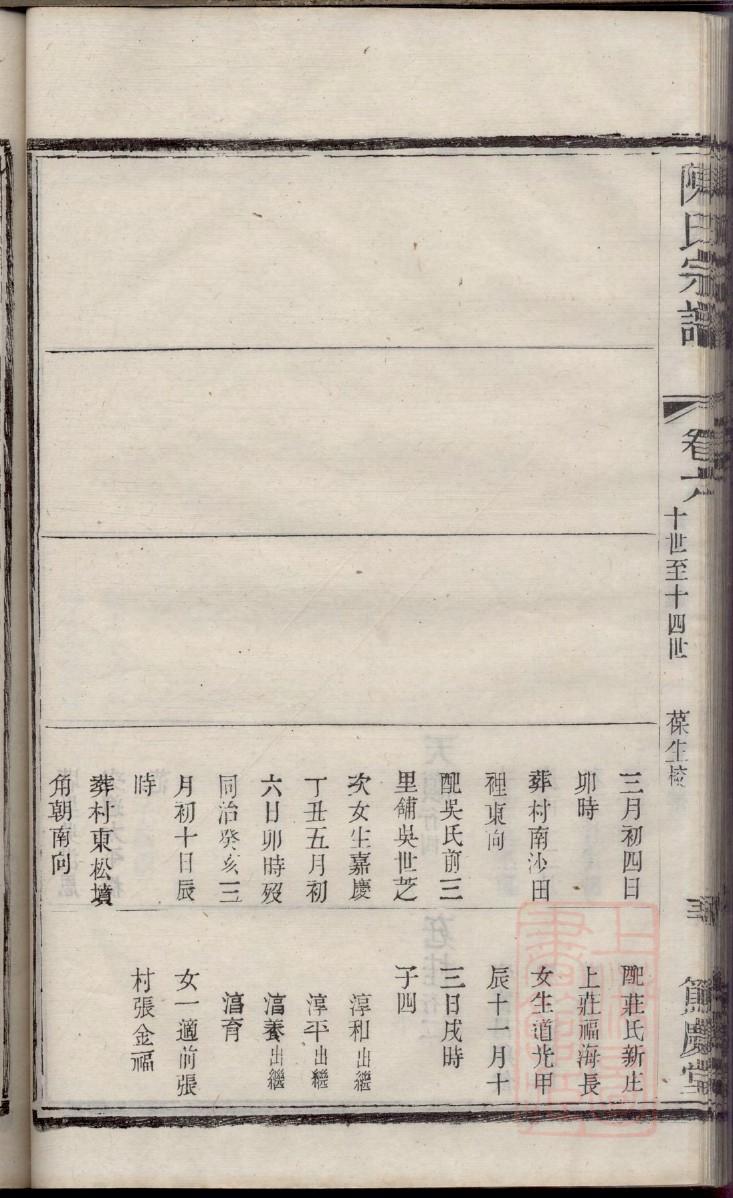 陳氏宗譜
卷六
十世至十四世
葆生校
篤慶堂
三月初四日
卯時
葬村南沙田
裡東向
配吳氏前三
里舖吳世芝
次女生嘉慶
丁丑五月初
六日卯時歿
同治癸亥三
月初十日辰
時
葬村東松墳
角朝南向
配莊氏新庄
上莊福海長
女生道光甲
辰十一月十
三日戌時
子四
淳和出繼
淳平出繼
淯養出繼
淯育
女一適前張
村張金福